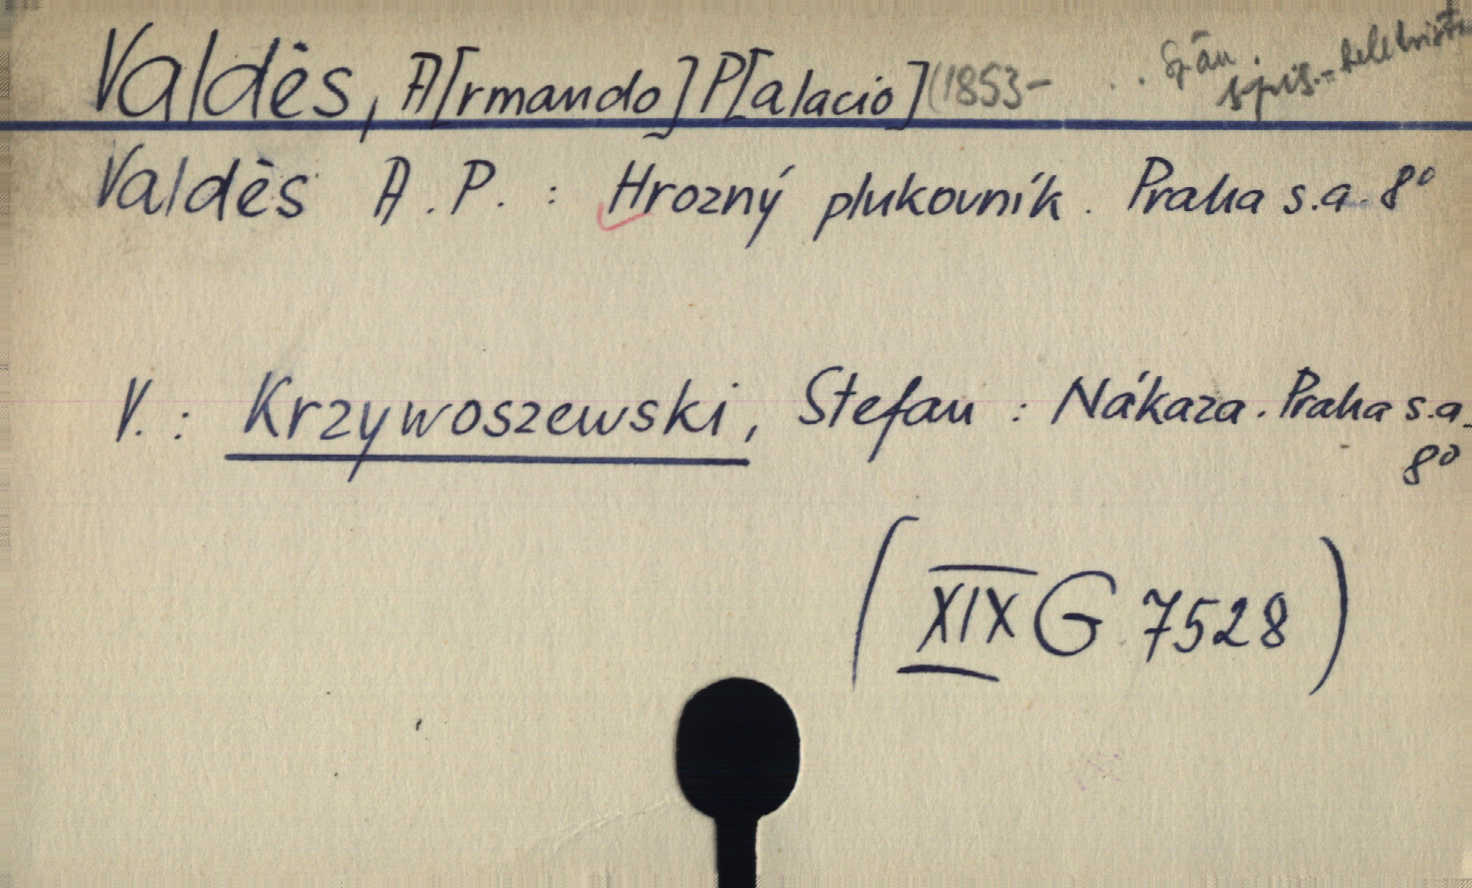 Valdès, A[rmando] P[alacio] (1853- . . Špan. spis. - beletrista
Valdès A. P. : Hrozný plukovník. Praha s.a. 8°
V. : Krzywoszewski, Stefan : Nákaza. Praha s.a.
8°
(XIX G 7528)